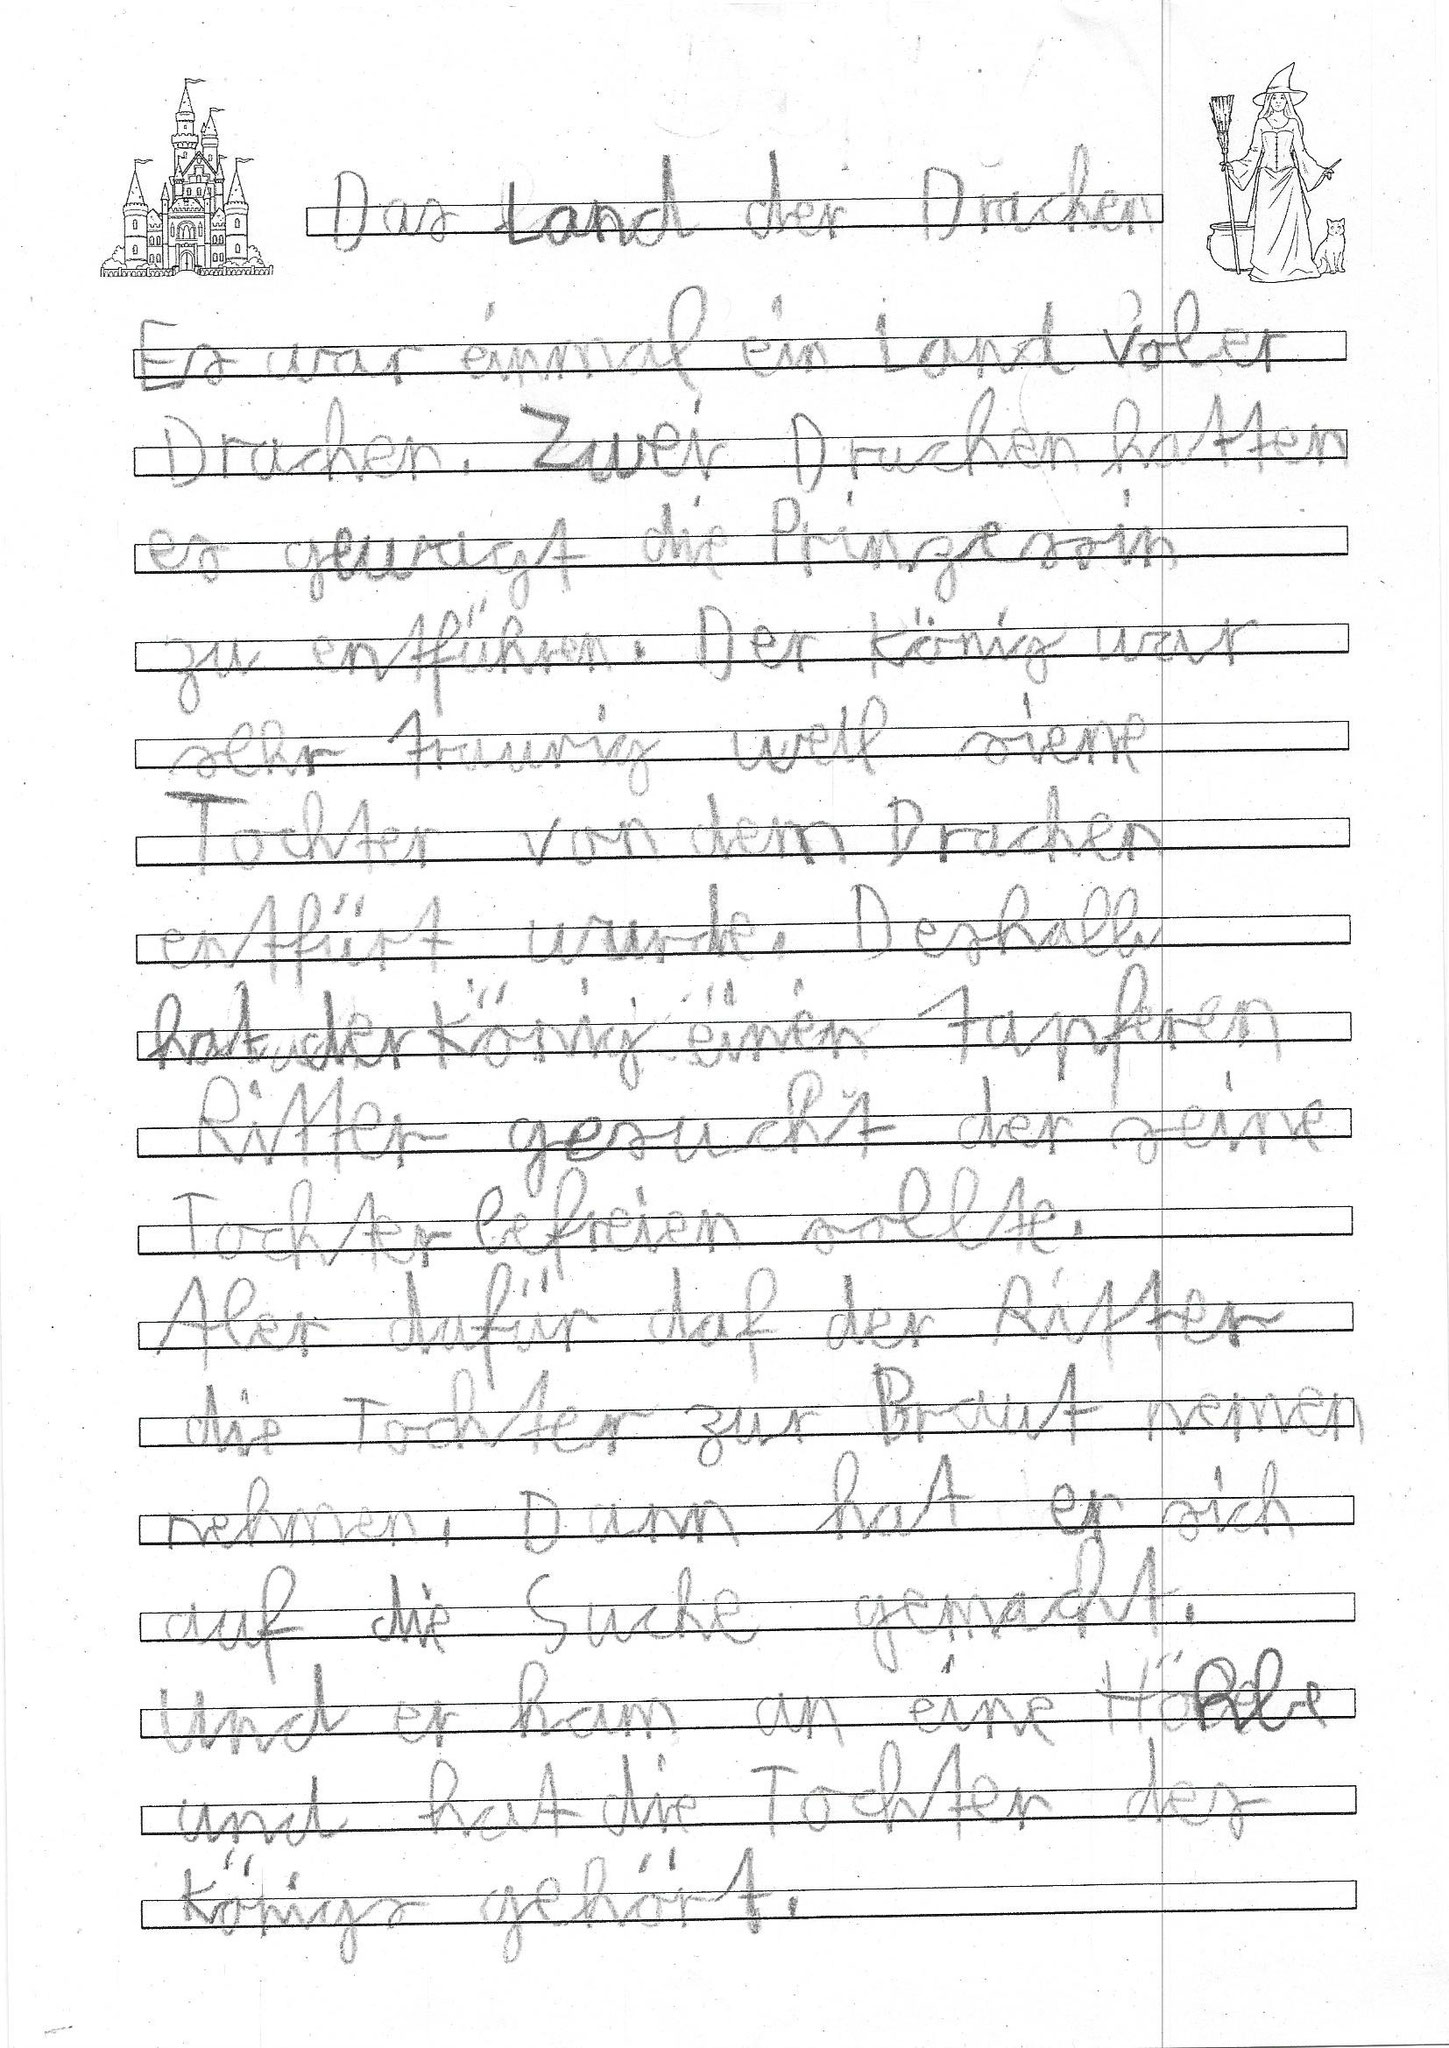 Das Land der Drachen
Es war einmal ein Land voler
Drachen. Zwei Drachen hatten
es gewagt die Prinzessin
zu entführen. Der König war
sehr traurig weil siene
Tochter von dem Drachen
entfürt wurde. Deshalb
hat der König einen tapferen
Ritter gesucht der seine
Tochter befreien sollte.
Aber dafür daf der Ritter
die Tochter zur Braut nemen
nehmen. Dann hat er sich
auf die Suche gemacht.
Und er kam an eine
und hat die Tochter des
Königs gehört.